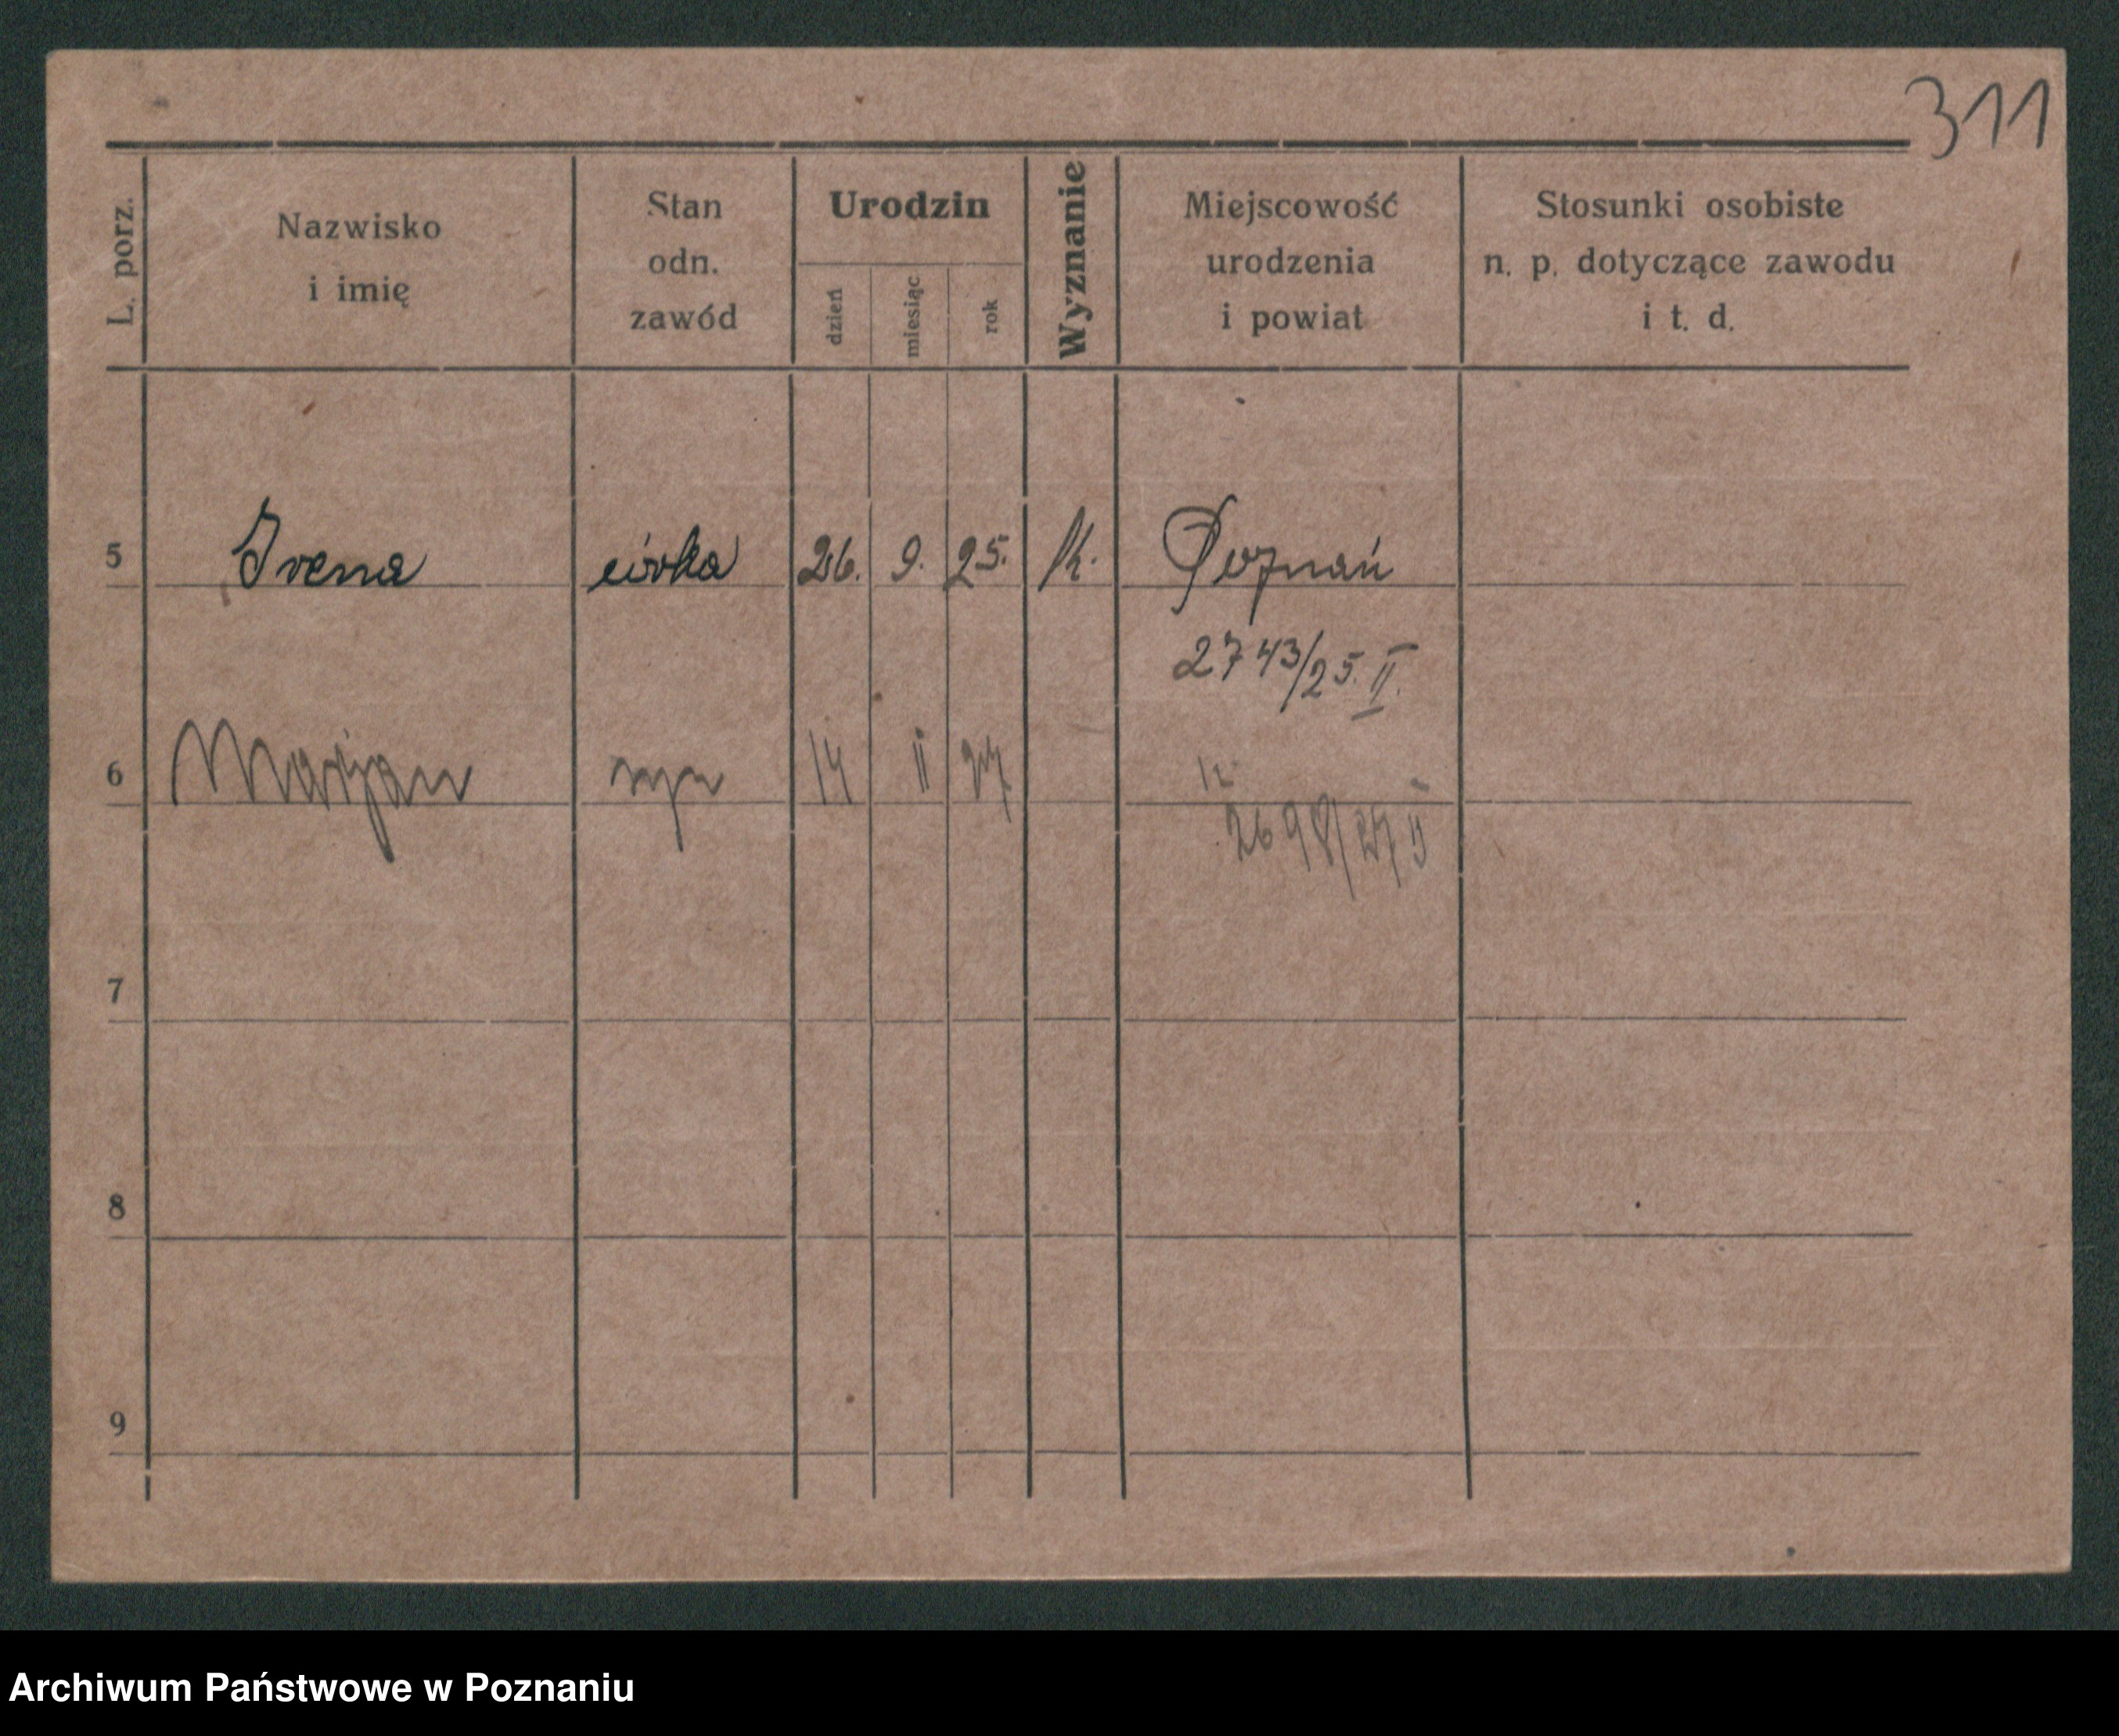 311
L. porz.
Nazwisko
i imię
Stan
odn.
zawód
Urodzin
dzień
miesiąc
rok
Wyznanie
Miejscowość
urodzenia
i powiat
Stosunki osobiste
n. p. dotyczące zawodu
i t. d.
5 Irena córka 26. 9. 25. k. Poznań
2743/25. II.
6 Marjan syn 14 II 27
2698/27 II
7
8
9
Archiwum Państwowe w Poznaniu